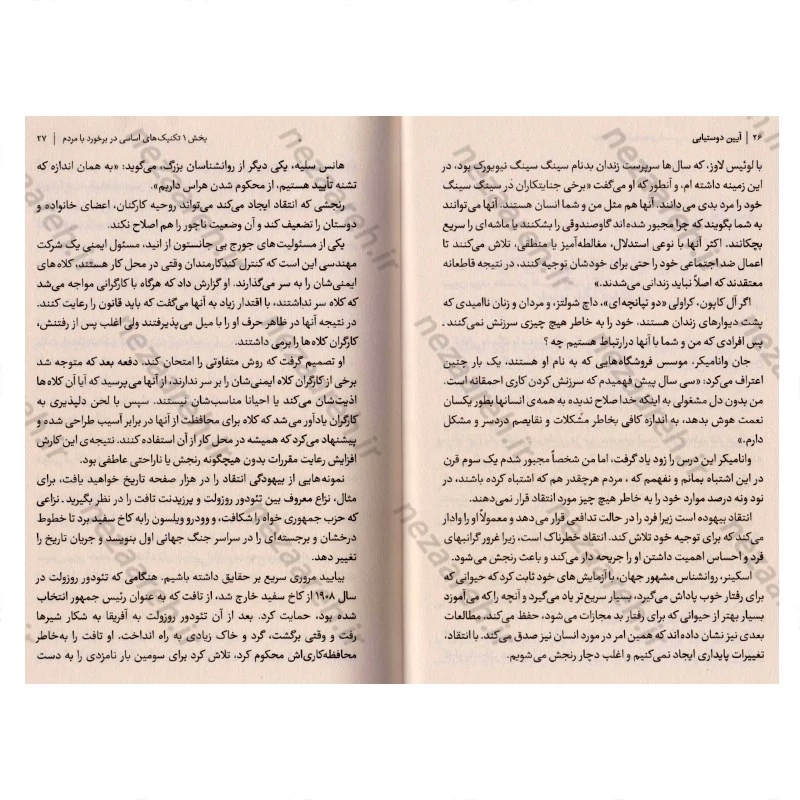 ۲۶ | آیین دوستیابی
با لوئیس لاوز، که سال ها سرپرست زندان بدنام سینگ سینگ نیویورک بود، در
این زمینه داشته ام، و آنطور که او می‌گفت «برخی جنایتکاران در سینگ سینگ
خود را مرد بدی می‌دانند. آنها هم مثل من و شما انسان هستند. آنها می‌توانند
به شما بگویند که چرا مجبور شده اند گاوصندوقی را بشکنند یا ماشه‌ای را سریع
بچکانند. اکثر آنها با نوعی استدلال، مغالطه‌آمیز یا منطقی، تلاش می‌کنند تا
اعمال ضد اجتماعی خود را حتی برای خودشان توجیه کنند، در نتیجه قاطعانه
معتقدند که اصلاً نباید زندانی می‌شدند.»
اگر آل کاپون، کراولی «دو تپانچه‌ای»، داچ شولتز، و مردان و زنان ناامیدی که
پشت دیوارهای زندان هستند، خود را به خاطر هیچ چیزی سرزنش نمی‌کنند ـ
پس افرادی که من و شما با آنها درارتباط هستیم چه ؟
جان وانامیکر، موسس فروشگاه‌هایی که به نام او هستند، یک بار چنین
اعتراف می‌کرد: «سی سال پیش فهمیدم که سرزنش کردن کاری احمقانه است.
من بدون دل مشغولی به اینکه خدا صلاح ندیده به همه‌ی انسانها بطور یکسان
نعمت هوش بدهد، به اندازه کافی بخاطر مشکلات و نقایصم دردسر و مشکل
دارم.»
وانامیکر این درس را زود یاد گرفت، اما من شخصاً مجبور شدم یک سوم قرن
در این اشتباه بمانم و نفهمم که ، مردم هرچقدر هم که اشتباه کرده باشند، در
نود ونه درصد موارد خود را به خاطر هیچ چیز مورد انتقاد قرار نمی‌دهند.
انتقاد بیهوده است زیرا فرد را در حالت تدافعی قرار می‌دهد و معمولاً او را وادار
می‌کند که برای توجیه خود تلاش کند. انتقاد خطرناک است، زیرا غرور گرانبهای
فرد و احساس اهمیت داشتن او را جریحه دار می‌کند و باعث رنجش می‌شود.
اسکینر، روانشناس مشهور جهان، با آزمایش های خود ثابت کرد که حیوانی که
برای رفتار خوب پاداش می‌گیرد، بسیار سریع‌تر یاد می‌گیرد و آنچه را که می آموزد
بسیار بهتر از حیوانی که برای رفتار بد مجازات می‌شود، حفظ می‌کند. مطالعات
بعدی نیز نشان داده اند که همین امر در مورد انسان نیز صدق می‌کند. با انتقاد،
تغییرات پایداری ایجاد نمی‌کنیم و اغلب دچار رنجش می‌شویم.
بخش ۱ تکنیک‌های اساسی در برخورد با مردم | ۲۷
هانس سلیه، یکی دیگر از روانشناسان بزرگ، می‌گوید: «به همان اندازه که
تشنه تأیید هستیم، از محکوم شدن هراس داریم».
رنجشی که انتقاد ایجاد می‌کند می‌تواند روحیه کارکنان، اعضای خانواده و
دوستان را تضعیف کند و آن وضعیت ناجور را هم اصلاح نکند.
یکی از مسئولیت‌های جورج بی جانستون از انید، مسئول ایمنی یک شرکت
مهندسی این است که کنترل کندکارمندان وقتی در محل کار هستند، کلاه‌های
ایمنی‌شان را به سر می‌گذارند. او گزارش داد که هرگاه با کارگرانی مواجه می‌شد
که کلاه سر نداشتند، با اقتدار زیاد به آنها می‌گفت که باید قانون را رعایت کنند.
در نتیجه آنها در ظاهر حرف او را با میل می‌پذیرفتند ولی اغلب پس از رفتنش،
کارگران کلاه‌ها را برمی داشتند.
او تصمیم گرفت که روش متفاوتی را امتحان کند. دفعه بعد که متوجه شد
برخی از کارگران کلاه ایمنی‌شان را بر سر ندارند، از آنها می‌پرسید که آیا آن کلاه‌ها
اذیت‌شان می‌کند یا احیانا مناسب‌شان نیستند. سپس با لحن دلپذیری به
کارگران یادآور می‌شد که کلاه برای محافظت از آنها در برابر آسیب طراحی شده و
پیشنهاد می‌کرد که همیشه در محل کار از آن استفاده کنند. نتیجه‌ی این کارش
افزایش رعایت مقررات بدون هیچگونه رنجش یا ناراحتی عاطفی بود.
نمونه‌هایی از بیهودگی انتقاد را در هزار صفحه تاریخ خواهید یافت، برای
مثال، نزاع معروف بین تئودور روزولت و پرزیدنت تافت را در نظر بگیرید ـ نزاعی
که حزب جمهوری خواه را شکافت، و وودرو ویلسون رابه کاخ سفید برد تا خطوط
درخشان و برجسته‌ای را در سراسر جنگ جهانی اول بنویسد و جریان تاریخ را
تغییر دهد.
بیایید مروری سریع بر حقایق داشته باشیم. هنگامی که تئودور روزولت در
سال ۱۹۰۸ از کاخ سفید خارج شد، از تافت که به عنوان رئیس جمهور انتخاب
شده بود، حمایت کرد. بعد از آن تئودور روزولت به آفریقا به شکار شیرها
رفت و وقتی برگشت، گرد و خاک زیادی به راه انداخت. او تافت را به‌خاطر
محافظه‌کاری‌اش محکوم کرد، تلاش کرد برای سومین بار نامزدی را به دست
nezaareh.ir